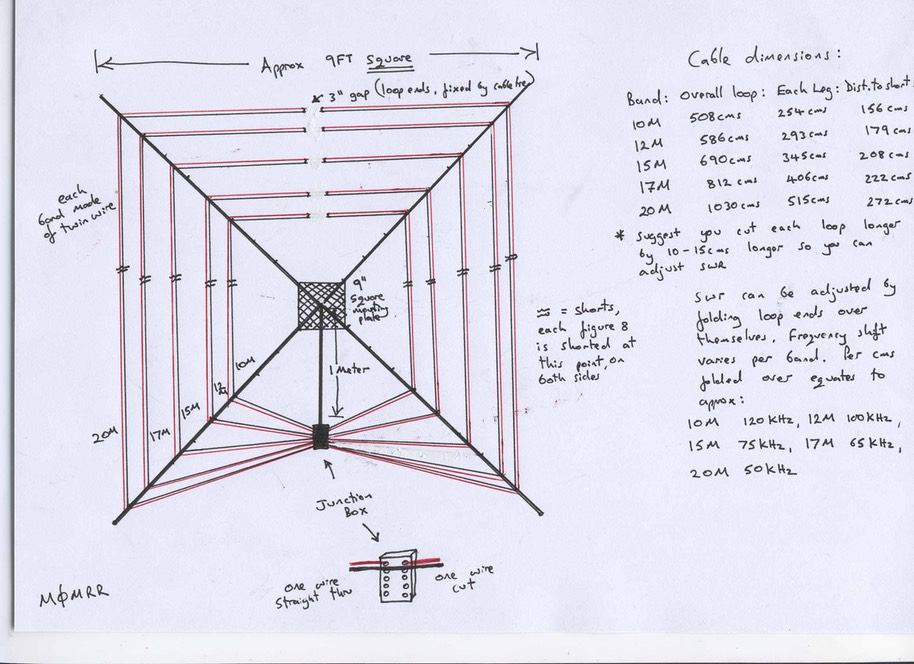 Approx 9FT Square
3" gap (loop ends, fixed by cable tie)
each
band made
of twin wire
9"
Square
mounting
plate
1 Meter
10M
12M
15M
17M
20M
≈ = shorts,
each figure 8
is shorted at
this point, on
both sides
Junction
Box
one wire
straight thru
one wire
cut
MØMRR
Cable dimensions:
Band: Overall loop: Each Leg: Dist. to short.
10M 508cms 254cms 156cms
12M 586cms 293cms 179cms
15M 690cms 345cms 208cms
17M 812cms 406cms 222cms
20M 1030cms 515cms 272cms
* Suggest you cut each loop longer
by 10-15cms longer so you can
adjust SWR
SWR can be adjusted by
folding loop ends over
themselves. Frequency shift
varies per band. Per cms
folded over equates to
aprox:
10M 120KHz, 12M 100KHz,
15M 75KHz, 17M 65KHz,
20M 50KHz